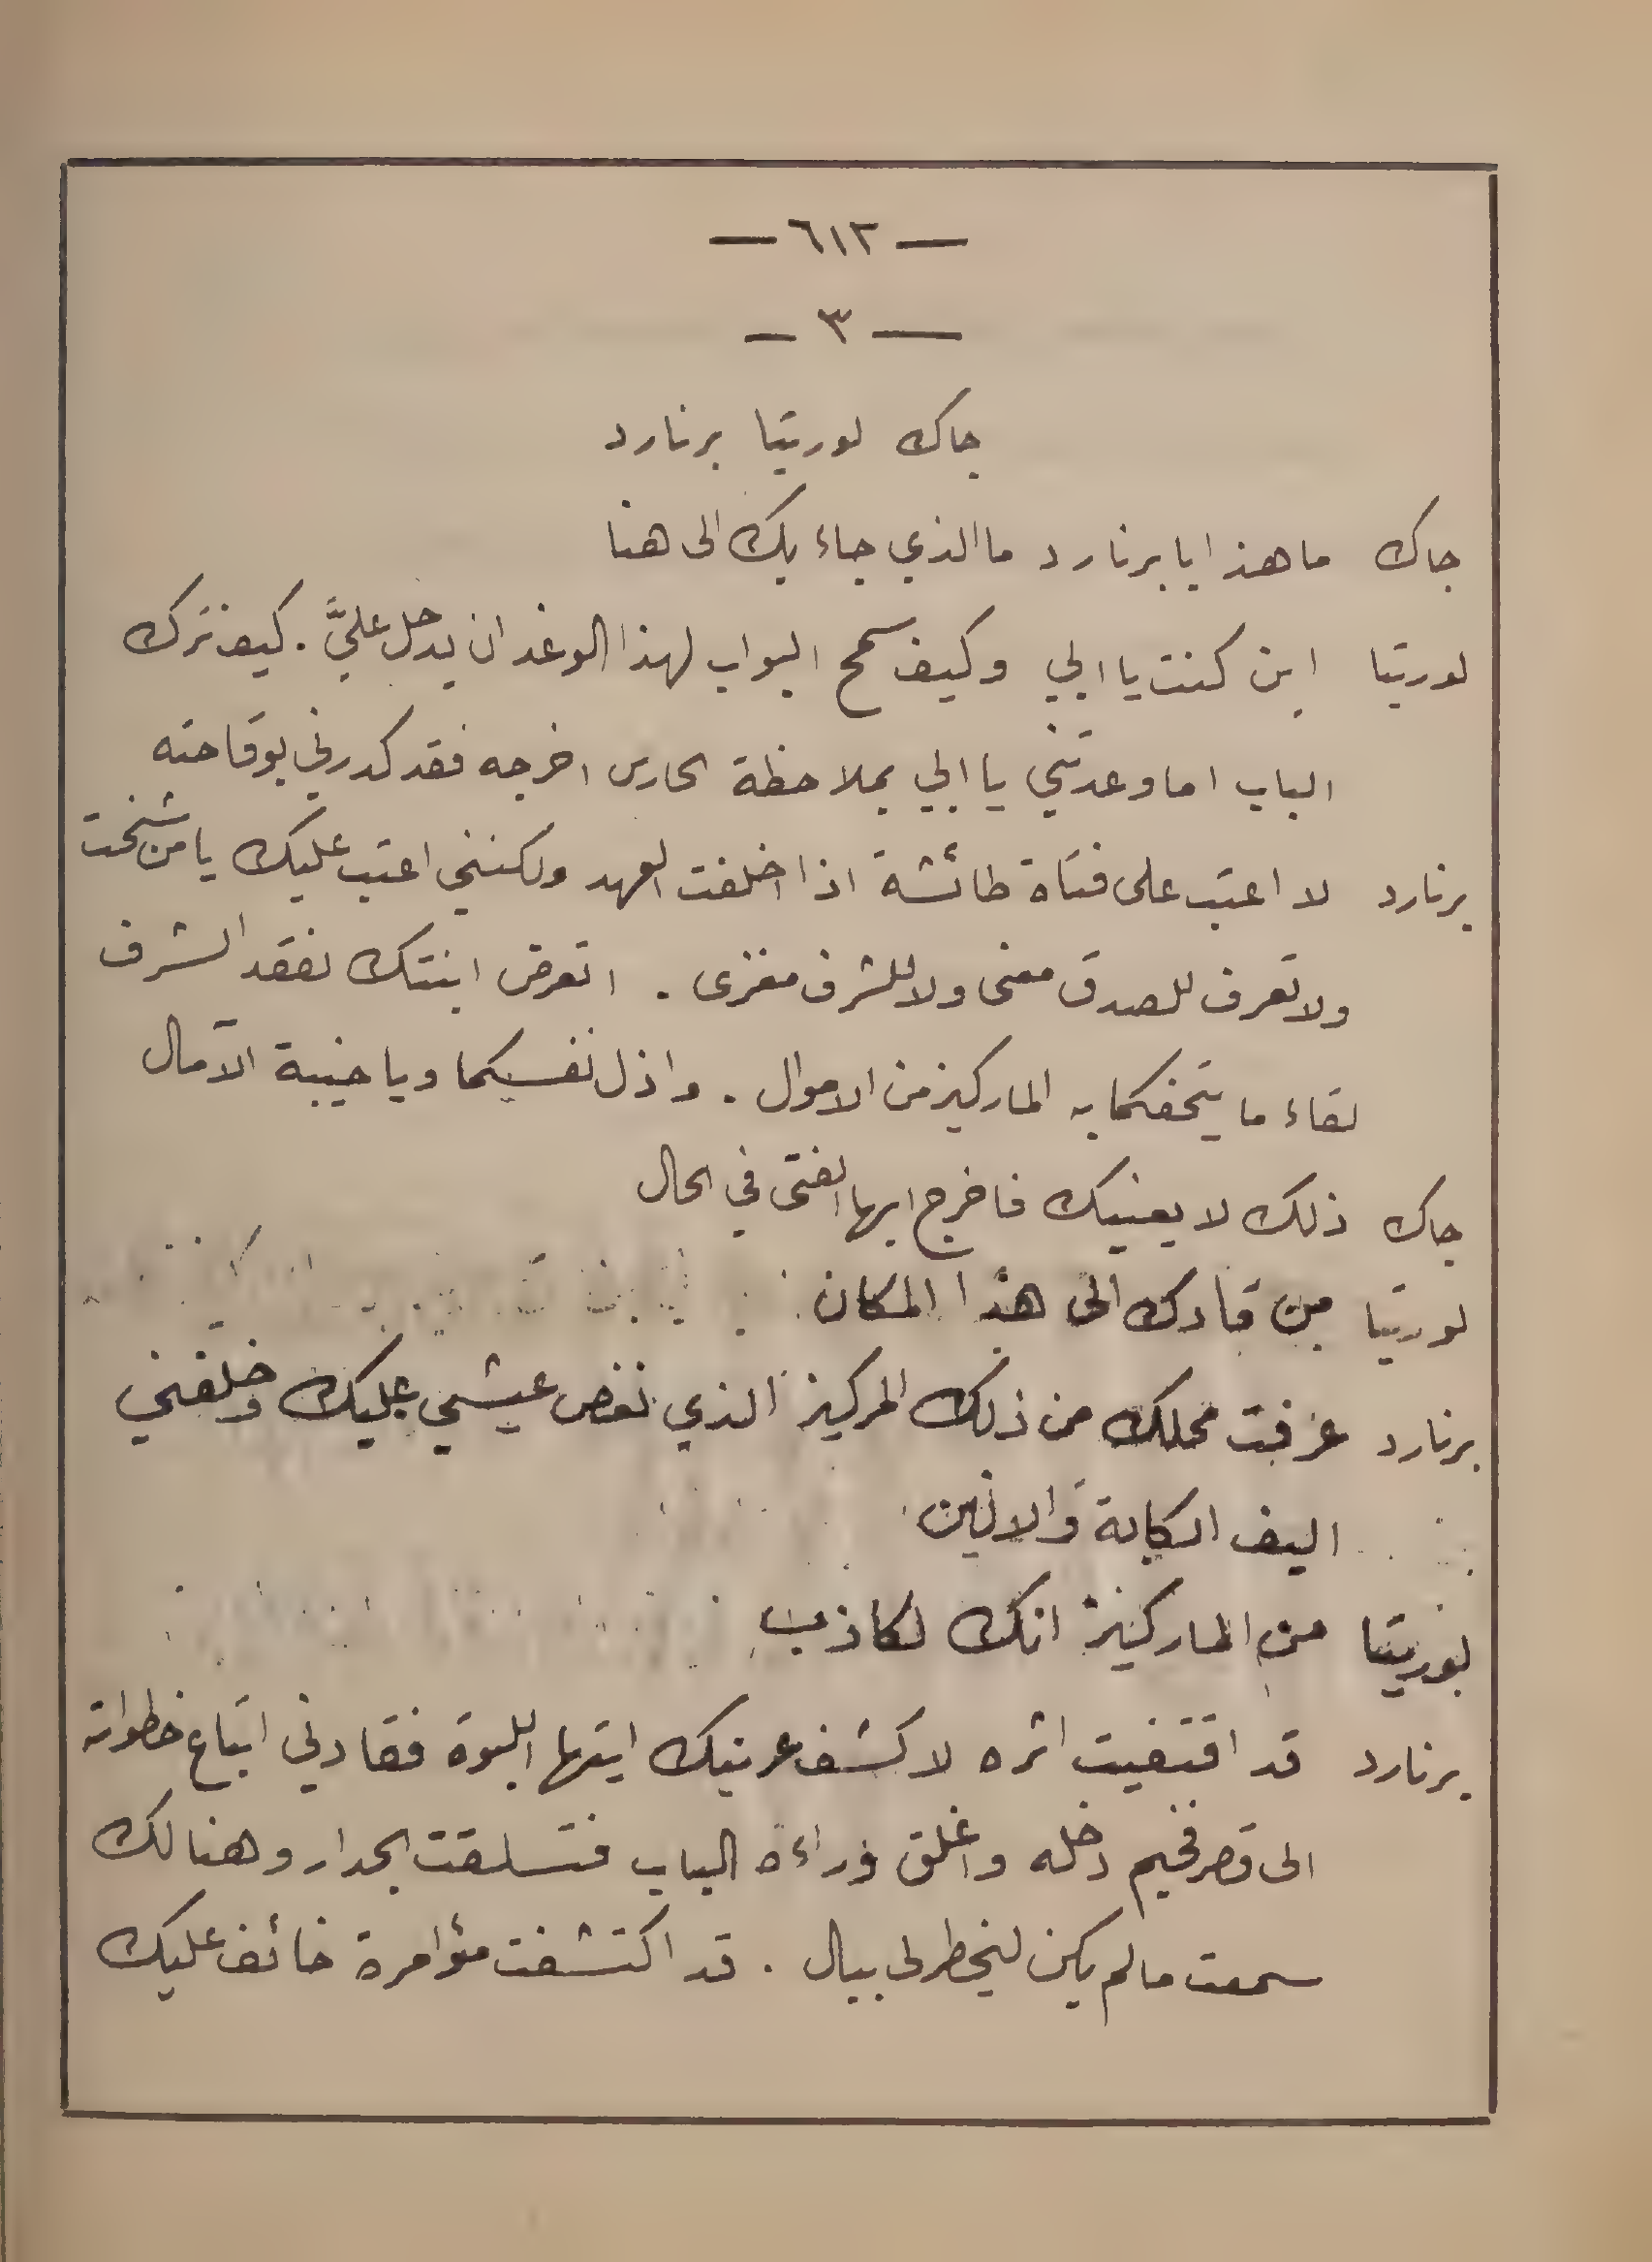 — ٦١٢ —
— ٣ —
جاك لوريتا برنارد
جاك ما هذا يا برنارد ما الذي جاء بك الى هنا
لوريتا اين كنت يا ابي وكيف سمح البواب لهذا الوغد ان يدخل عليَّ . كيف ترك
الباب اما وعدتني يا ابي بملاحظة الحارس اخرجه فقد كدرني بوقاحته
برنارد لا اعتب على فتاة طائشة اذا اخلفت العهد ولكنني اعتب عليك يا من شخت
ولا تعرف للصدق معنى ولا للشرف مغزى . اتعرض ابنتك لفقد الشرف
لقاء ما يتحفكما به الماركيز من الاموال . واذل نفسيكما ويا خيبة الآمال
جاك ذلك لا يعنيك فاخرج ايها الفتى في الحال
لوريتا من قادك الى هذا المكان
برنارد عرفت محلك من ذلك المركيز الذي نغص عيشي عليك وخلفني
اليف الكابة والانين
لوريتا من الماركيز انك لكاذب
برنارد قد اقتفيت اثره لاكشف عرينك ايتها اللبوة فقادني اتباع خطواته
الى قصر فخيم دخله واغلق وراءه الباب فتسلقت الجدار وهنالك
سمعت ما لم يكن ليخطر لي ببال . قد اكتشفت مؤامرة خائف عليك